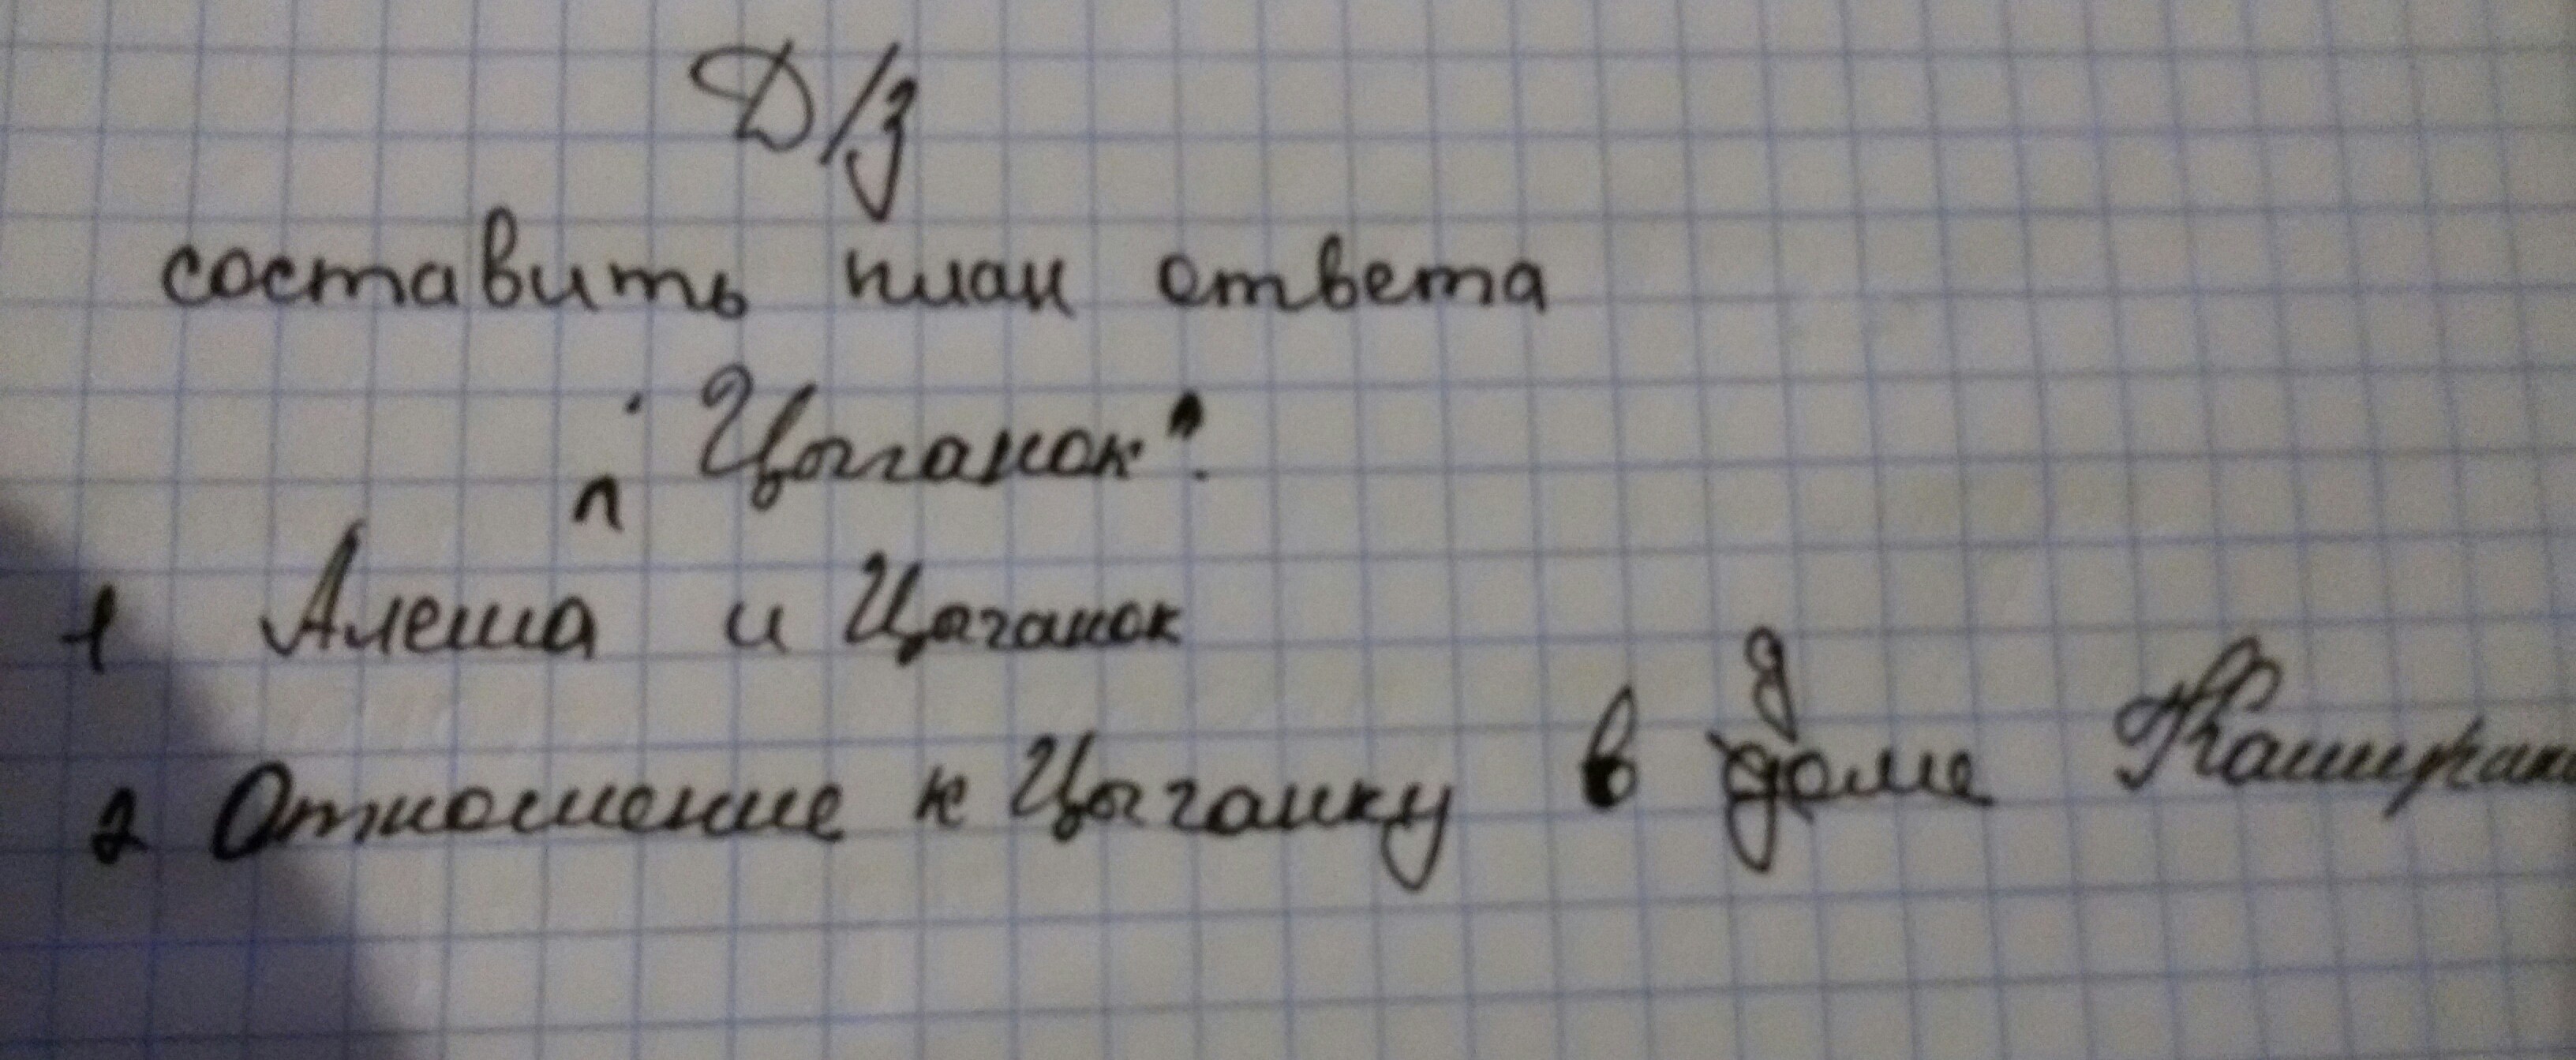 Д/з
составить план ответа
"Цыганок".
п
1 Алеша и Цыганок
д
2 Отношение к Цыганку в доме Кашири